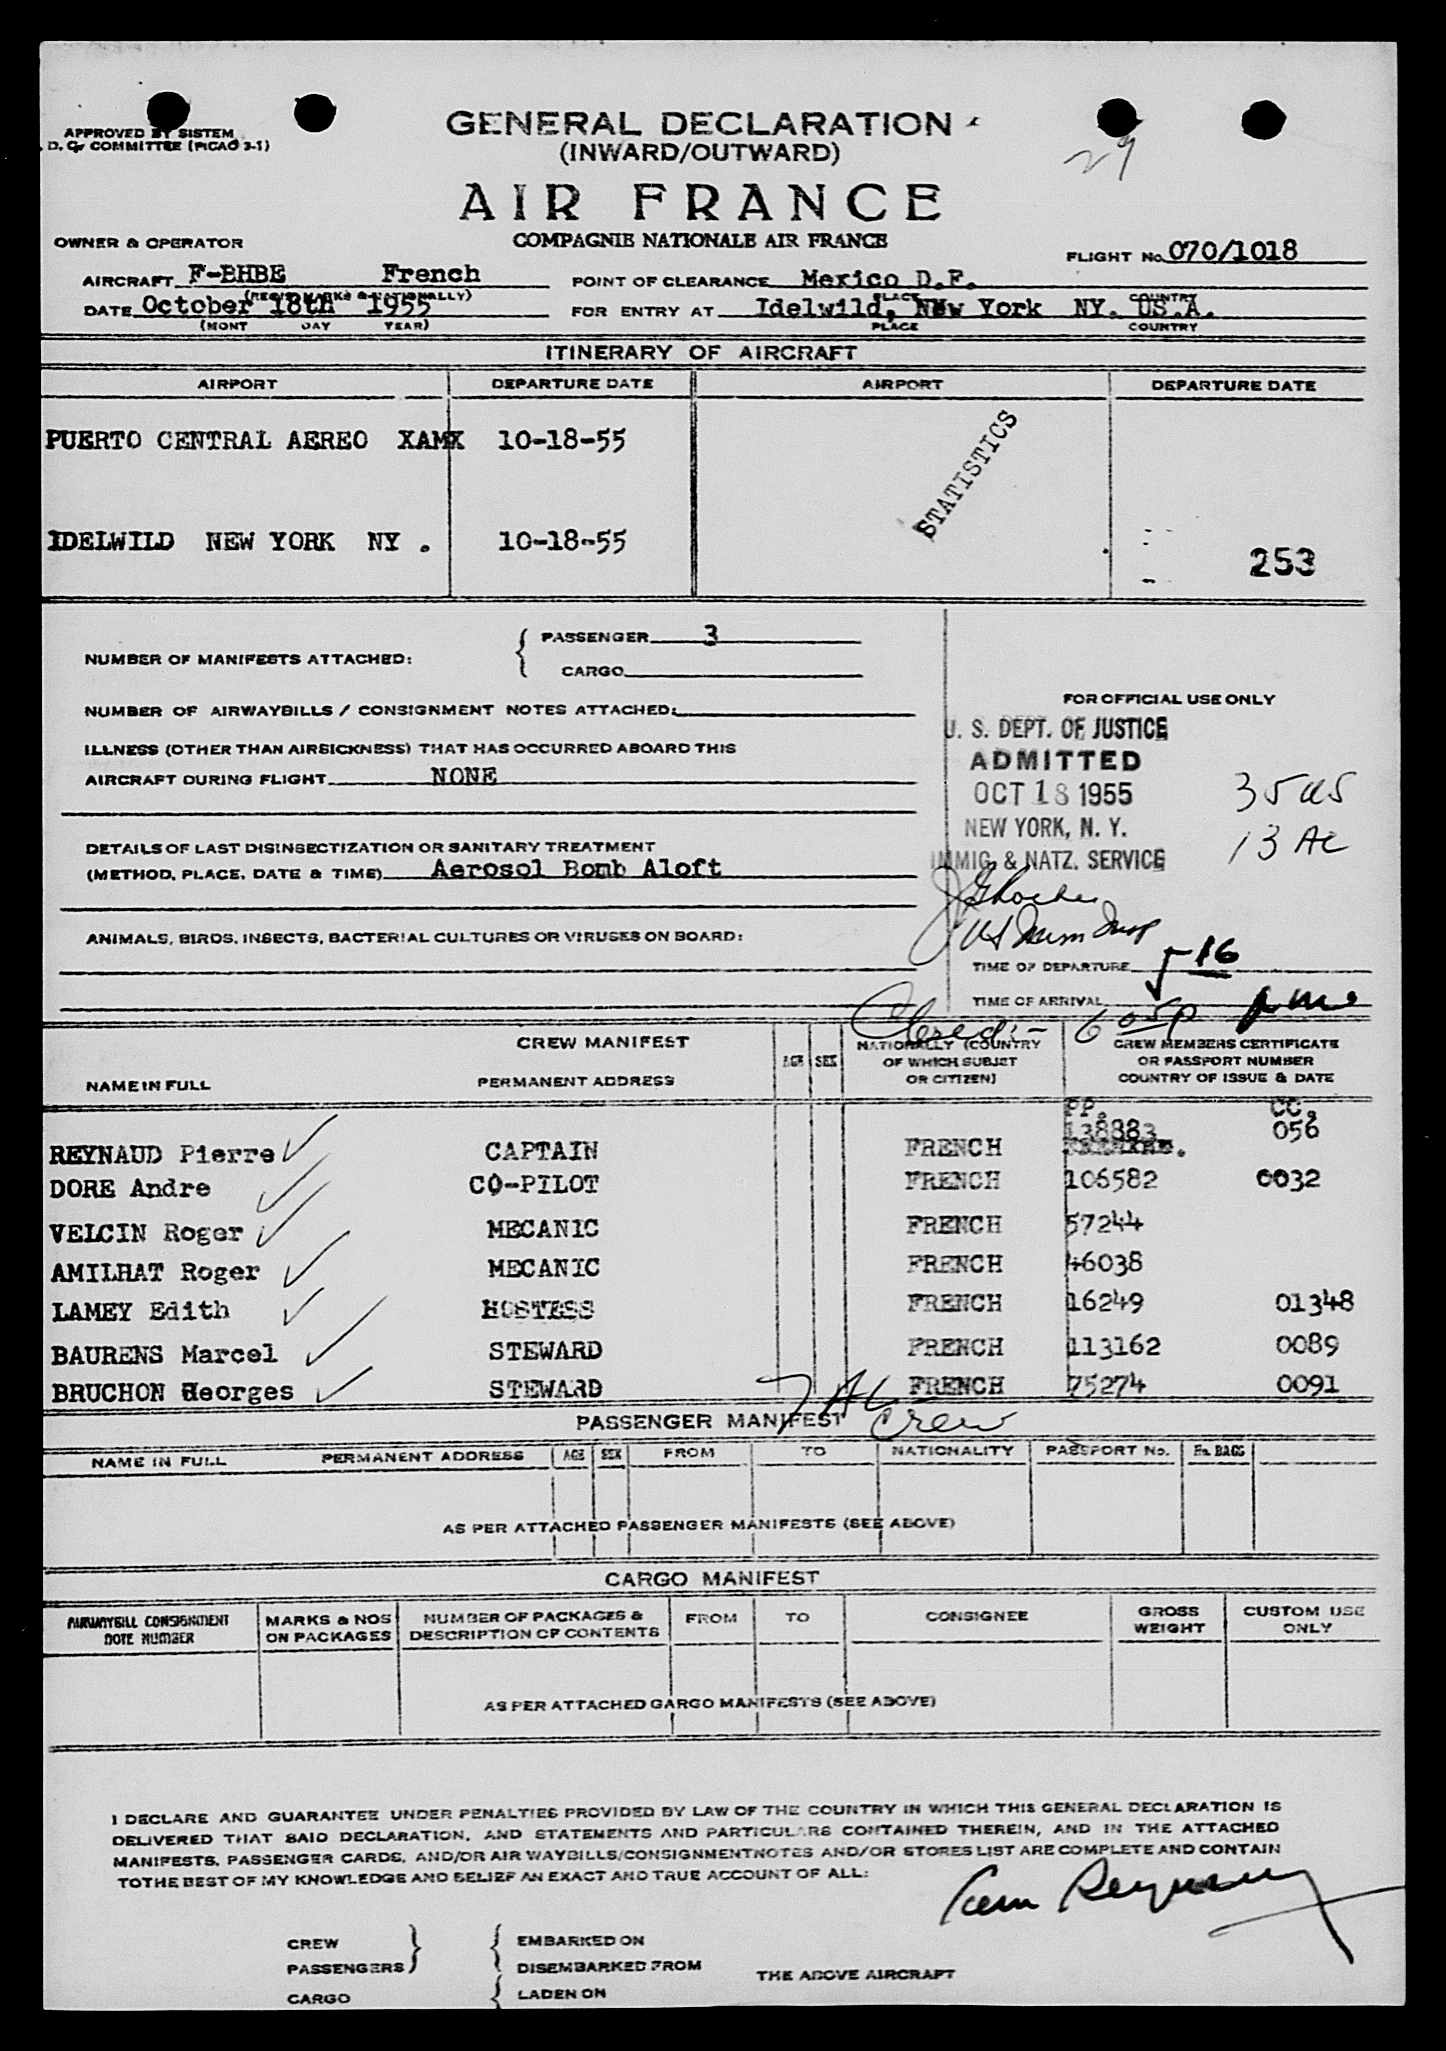 GENERAL DECLARATION
(INWARD/OUTWARD)
APPROVED BY SISTEM
D. C. COMMITTEE (PICAO 3-1)
29
AIR FRANCE
COMPAGNIE NATIONALE AIR FRANCE
OWNER & OPERATOR
FLIGHT No. 070/1018
AIRCRAFT F-BHBE French
POINT OF CLEARANCE Mexico D.F.
(REGIST MARKS & NATIONALLY)
PLACE COUNTRY
DATE October 18th 1955
FOR ENTRY AT Idelwild, New York NY. US.A.
(MONT DAY YEAR)
PLACE COUNTRY
ITINERARY OF AIRCRAFT
AIRPORT DEPARTURE DATE AIRPORT DEPARTURE DATE
PUERTO CENTRAL AEREO XAMX 10-18-55
STATISTICS
IDELWILD NEW YORK NY . 10-18-55
253
NUMBER OF MANIFESTS ATTACHED:
PASSENGER 3
CARGO
NUMBER OF AIRWAYBILLS / CONSIGNMENT NOTES ATTACHED:
ILLNESS (OTHER THAN AIRSICKNESS) THAT HAS OCCURRED ABOARD THIS
AIRCRAFT DURING FLIGHT NONE
DETAILS OF LAST DISINSECTIZATION OR SANITARY TREATMENT
(METHOD, PLACE, DATE & TIME) Aerosol Bomb Aloft
ANIMALS, BIRDS, INSECTS, BACTERIAL CULTURES OR VIRUSES ON BOARD:
FOR OFFICIAL USE ONLY
U. S. DEPT. OF JUSTICE
ADMITTED
OCT 18 1955
NEW YORK, N. Y.
IMMIG. & NATZ. SERVICE
35 US
13 AL
US Imm Insp
TIME OF DEPARTURE 16
TIME OF ARRIVAL
605P pm.
CREW MANIFEST
NAME IN FULL
PERMANENT ADDRESS
AGE SEX
NATIONALLY (COUNTRY
OF WHICH SUBJET
OR CITIZEN)
CREW MEMBERS CERTIFICATE
OR PASSPORT NUMBER
COUNTRY OF ISSUE & DATE
PP. CC.
REYNAUD Pierre CAPTAIN FRENCH 138883 056
DORE Andre CO-PILOT FRENCH 106582 0032
VELCIN Roger MECANIC FRENCH 57244
AMILHAT Roger MECANIC FRENCH 46038
LAMEY Edith HOSTESS FRENCH 16249 01348
BAURENS Marcel STEWARD FRENCH 113162 0089
BRUCHON Georges STEWARD FRENCH 75274 0091
7 AL Crew
PASSENGER MANIFEST
NAME IN FULL PERMANENT ADDRESS AGE SEX FROM TO NATIONALITY PASSPORT No. BAGS
AS PER ATTACHED PASSENGER MANIFESTS (SEE ABOVE)
CARGO MANIFEST
AIRWAYBILL CONSIGNMENT
NOTE NUMBER
MARKS & NOS
ON PACKAGES
NUMBER OF PACKAGES &
DESCRIPTION OF CONTENTS
FROM
TO
CONSIGNEE
GROSS
WEIGHT
CUSTOM USE
ONLY
AS PER ATTACHED CARGO MANIFESTS (SEE ABOVE)
I DECLARE AND GUARANTEE UNDER PENALTIES PROVIDED BY LAW OF THE COUNTRY IN WHICH THIS GENERAL DECLARATION IS
DELIVERED THAT SAID DECLARATION, AND STATEMENTS AND PARTICULARS CONTAINED THEREIN, AND IN THE ATTACHED
MANIFESTS, PASSENGER CARDS, AND/OR AIR WAYBILLS/CONSIGNMENTNOTES AND/OR STORES LIST ARE COMPLETE AND CONTAIN
TOTHE BEST OF MY KNOWLEDGE AND BELIEF AN EXACT AND TRUE ACCOUNT OF ALL:
CREW
PASSENGERS
CARGO
EMBARKED ON
DISEMBARKED FROM
LADEN ON
THE ABOVE AIRCRAFT